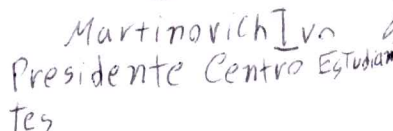 Martinovich Ivo
Presidente Centro Estudian
tes